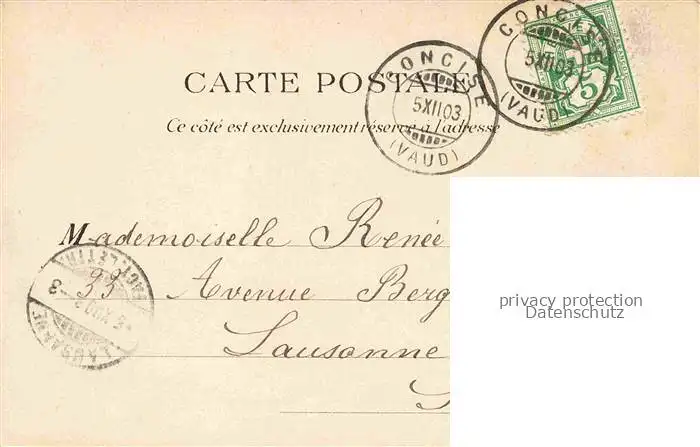 CONCISE
5XII.03
(VAUD)
CONCISE
5XII.03
(VAUD)
5
CARTE POSTALE
Ce côté est exclusivement réservé à l'adresse
Mademoiselle Renée
33 Avenue Berg
Lausanne
LAUSANNE
privacy protection
Datenschutz